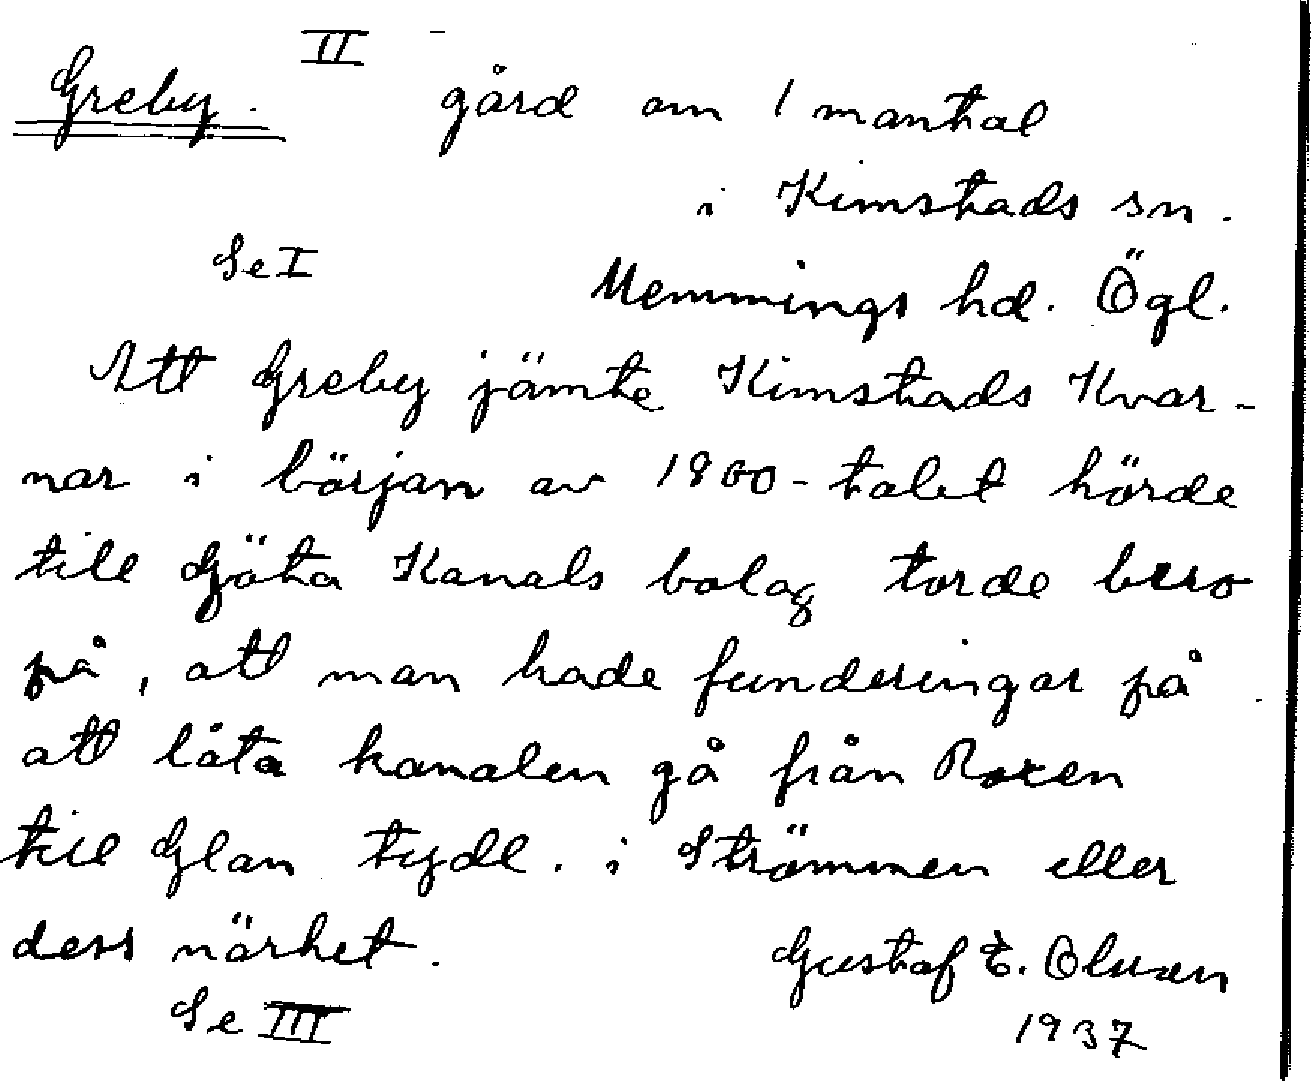 II
Greby. gård om 1 mantal
i Kimstads sn.
Se I
Memmings hd. Ögl.
Att Greby jämte Kimstads Kvar-
nar i början av 1800-talet hörde
till Göta Kanals bolag torde bero
på, att man hade funderingar på
att låta kanalen gå från Roxen
till Glan tydl. i Strömmen eller
dess närhet.
Gustaf E. Olsson
Se III
1937